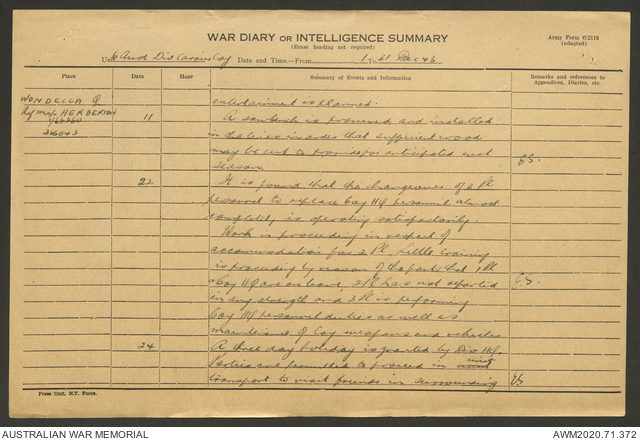 WAR DIARY OR INTELLIGENCE SUMMARY
(Erase heading not required)
Army Form C.2118
(adapted)
Unit 6 Aust Div Carrier Coy Date and Time.—From 1 To 31 Dec 43
Place Date Hour Summary of Events and Information Remarks and references to Appendices, Diaries, etc.
WONDELLA Q
Ref map HERBERTON
entertainment is planned.
11 A saw bench is procured and installed
in the lines in order that sufficient wood
may be cut to provide for anticipated wet
season.
22 It is found that the changeover of 3 Pl
personnel to replace Coy HQ personnel almost
completely is operating satisfactorily
Work is proceeding in respect of
accommodation for 2 Pl. Little training
is proceeding by reason of the fact that 1 Pl
& Coy HQ are on leave, 2 Pl has not reported
in any strength and 3 Pl is performing
Coy HQ personnel duties as well as
maintenance of Coy weapons and vehicles
24 A three day holiday is granted by Div HQ.
Parties are permitted to proceed in unit
transport to visit friends in surrounding
Press Unit, N.T. Force.
AUSTRALIAN WAR MEMORIAL
AWM2020.71.372